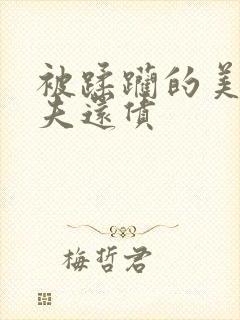 被蹂躏的美
夫還债
梅哲君